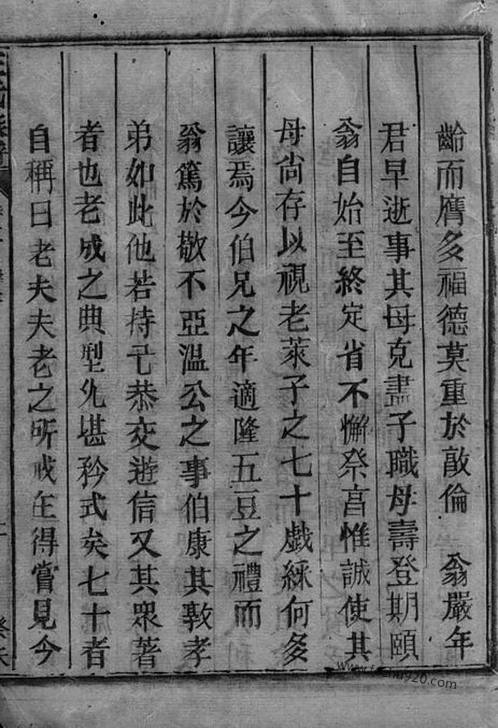 齡而膺多福德莫重於敵倫　翁嚴年
君早逝事其母克盡子職母壽登期頤
翁自始至終定省不懈祭亯惟誠使其
母尙存以視老萊子之七十戱綵何多
讓焉今伯兄之年適隆五豆之禮而
翁篤於敬不亞溫公之事伯康其敦孝
弟如此他若持己恭交遊信又其衆著
者也老成之典型允堪矜式矣七十者
自稱曰老夫夫老之所戒在得嘗見今